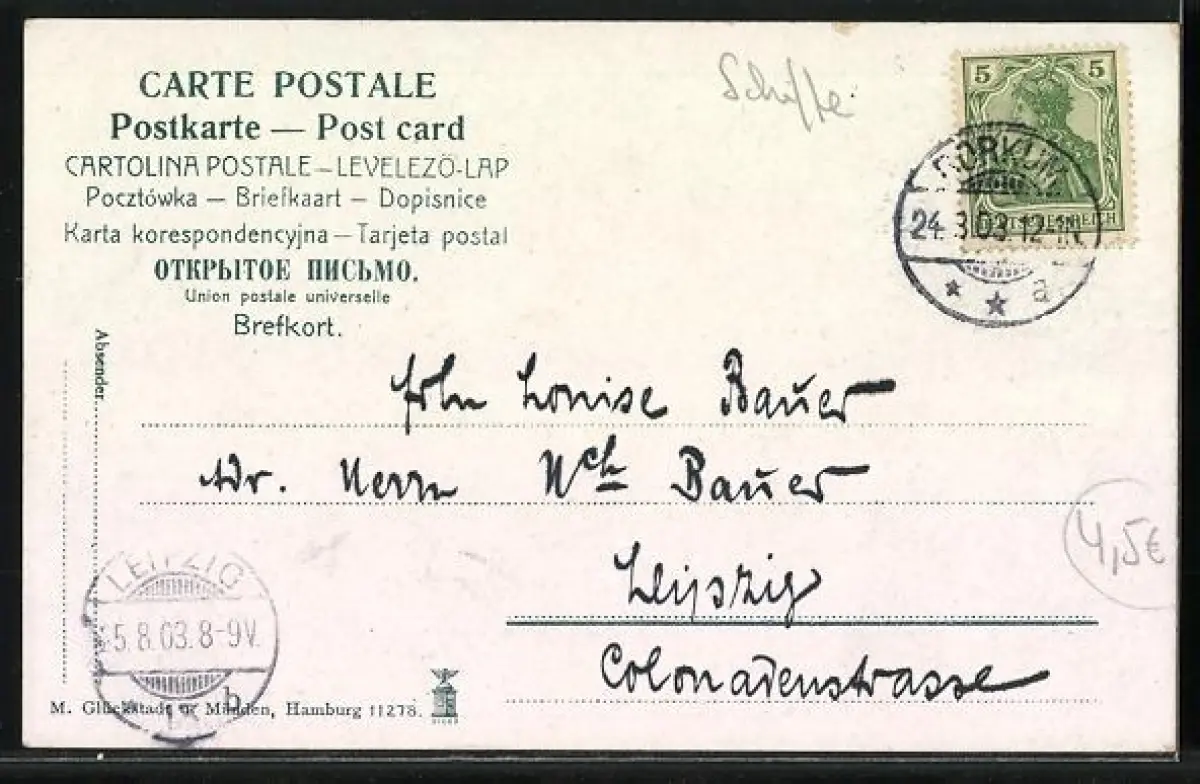 CARTE POSTALE
Postkarte — Post card
CARTOLINA POSTALE — LEVELEZÖ-LAP
Pocztówka — Briefkaart — Dopisnice
Karta korespondencyjna — Tarjeta postal
ОТКРЫТОЕ ПИСЬМО.
Union postale universelle
Brefkort.
Schiffe
5 5
BORKUM
24. 3.03. 12-1N.
a
Absender.
Frln Louise Bauer
Adr. Herrn Wch Bauer
Leipzig
Colonadenstrasse
4,5€
LEIPZIG
5.8.03.8-9V.
b
M. Glückstadt & Münden, Hamburg 11278.